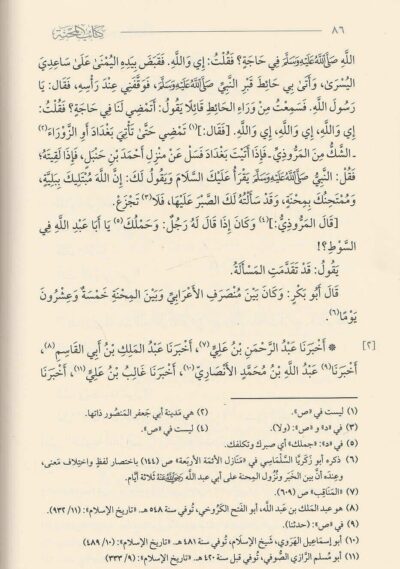 ٨٦ كتاب المحنة
اللَّهِ ﷺ فِي حَاجَةٍ؟ فَقُلْتُ: إِي وَاللَّهِ. فَقَبَضَ بِيَدِهِ الْيُمْنَى عَلَى سَاعِدِيَ
الْيُسْرَى، وَأَتَى بِي حَائِطَ قَبْرِ النَّبِيِّ ﷺ، فَوَقَّفَنِي عِنْدَ رَأْسِهِ، فَقَالَ: يَا
رَسُولَ اللَّهِ. فَسَمِعْتُ مِنْ وَرَاءِ الْحَائِطِ قَائِلًا يَقُولُ: أَتَمْضِي لَنَا فِي حَاجَةٍ؟ فَقُلْتُ:
إِي وَاللَّهِ، إِي وَاللَّهِ، إِي وَاللَّهِ. [فَقَالَ:](١) تَمْضِي حَتَّى تَأْتِيَ بَغْدَادَ أَوِ الزَّوْرَاءَ(٢)
ـ الشَّكُّ مِنَ المَرُّوذِيِّ ـ فَإِذَا أَتَيْتَ بَغْدَادَ فَسَلْ عَنْ مَنْزِلِ أَحْمَدَ بْنِ حَنْبَلٍ، فَإِذَا لَقِيتَهُ؟
فَقُلْ: النَّبِيُّ ﷺ يَقْرَأُ عَلَيْكَ السَّلَامَ وَيَقُولُ لَكَ: إِنَّ اللَّهَ مُبْتَلِيكَ بِبَلِيَّةٍ،
وَمُمْتَحِنُكَ بِمِحْنَةٍ، وَقَدْ سَأَلْتُهُ لَكَ الصَّبْرَ عَلَيْهَا، فَلَا(٣) تَجْزَعْ.
[قَالَ المَرُّوذِيُّ:](٤) وَكَانَ إِذَا قَالَ لَهُ رَجُلٌ: وَحَمْلُكَ(٥) يَا أَبَا عَبْدِ اللَّهِ فِي
السَّوْطِ؟!
يَقُولُ: قَدْ تَقَدَّمَتِ المَسْأَلَةُ.
قَالَ أَبُو بَكْرٍ: وَكَانَ بَيْنَ مُنْصَرَفِ الأَعْرَابِيِّ وَبَيْنَ المِحْنَةِ خَمْسَةٌ وَعِشْرُونَ
يَوْمًا(٦).
[٢] * أَخْبَرَنَا عَبْدُ الرَّحْمَنِ بْنُ عَلِيٍّ(٧)، أَخْبَرَنَا عَبْدُ المَلِكِ بْنُ أَبِي القَاسِمِ(٨)،
أَخْبَرَنَا(٩) عَبْدُ اللَّهِ بْنُ مُحَمَّدٍ الأَنْصَارِيُّ(١٠)، أَخْبَرَنَا غَالِبُ بْنُ عَلِيٍّ(١١)، أَخْبَرَنَا
(١) ليست في «ص». (٢) هي مدينة أبي جعفر المَنصُور ذاتها.
(٣) في «د» و«ص»: (ولا). (٤) ليست في «ص».
(٥) في «د»: «جملك» أي صبرك وتكلفك.
(٦) ذكره أبو زكريَّا السَّلَماسِي في «مَنَازل الأئمَّة الأربَعة» ص (١٤٤) باختصار لفظٍ واختِلاف معنى،
وعِندَه أنَّ بين الخَبر ونُزُول المِحنة على أبي عبد الله رَضِيَ اللهُ عَنْهُ ثلاثة أيَّام.
(٧) «المَنَاقِب» ص (٦٠٩).
(٨) هو عبد المَلك بن عَبد الله، أبو الفَتح الكَرُوخي، تُوفي سنة ٥٤٨ هـ. «تاريخ الإسلام»: (١١/ ٩٣٢).
(٩) في «ص»: (حدثنا).
(١٠) أبو إسماعِيل الهَروي، شَيخ الإسلَام، تُوفي سنة ٤٨١ هـ. «تَاريخ الإسلَام»: (١٠/ ٤٨٩)
(١١) أبو مُسلم الرَّازي الصُّوفي، تُوفي قبل سنة ٤٢٠ هـ. «تَاريخ الإسلَام»: (٩/ ٣٣٣)